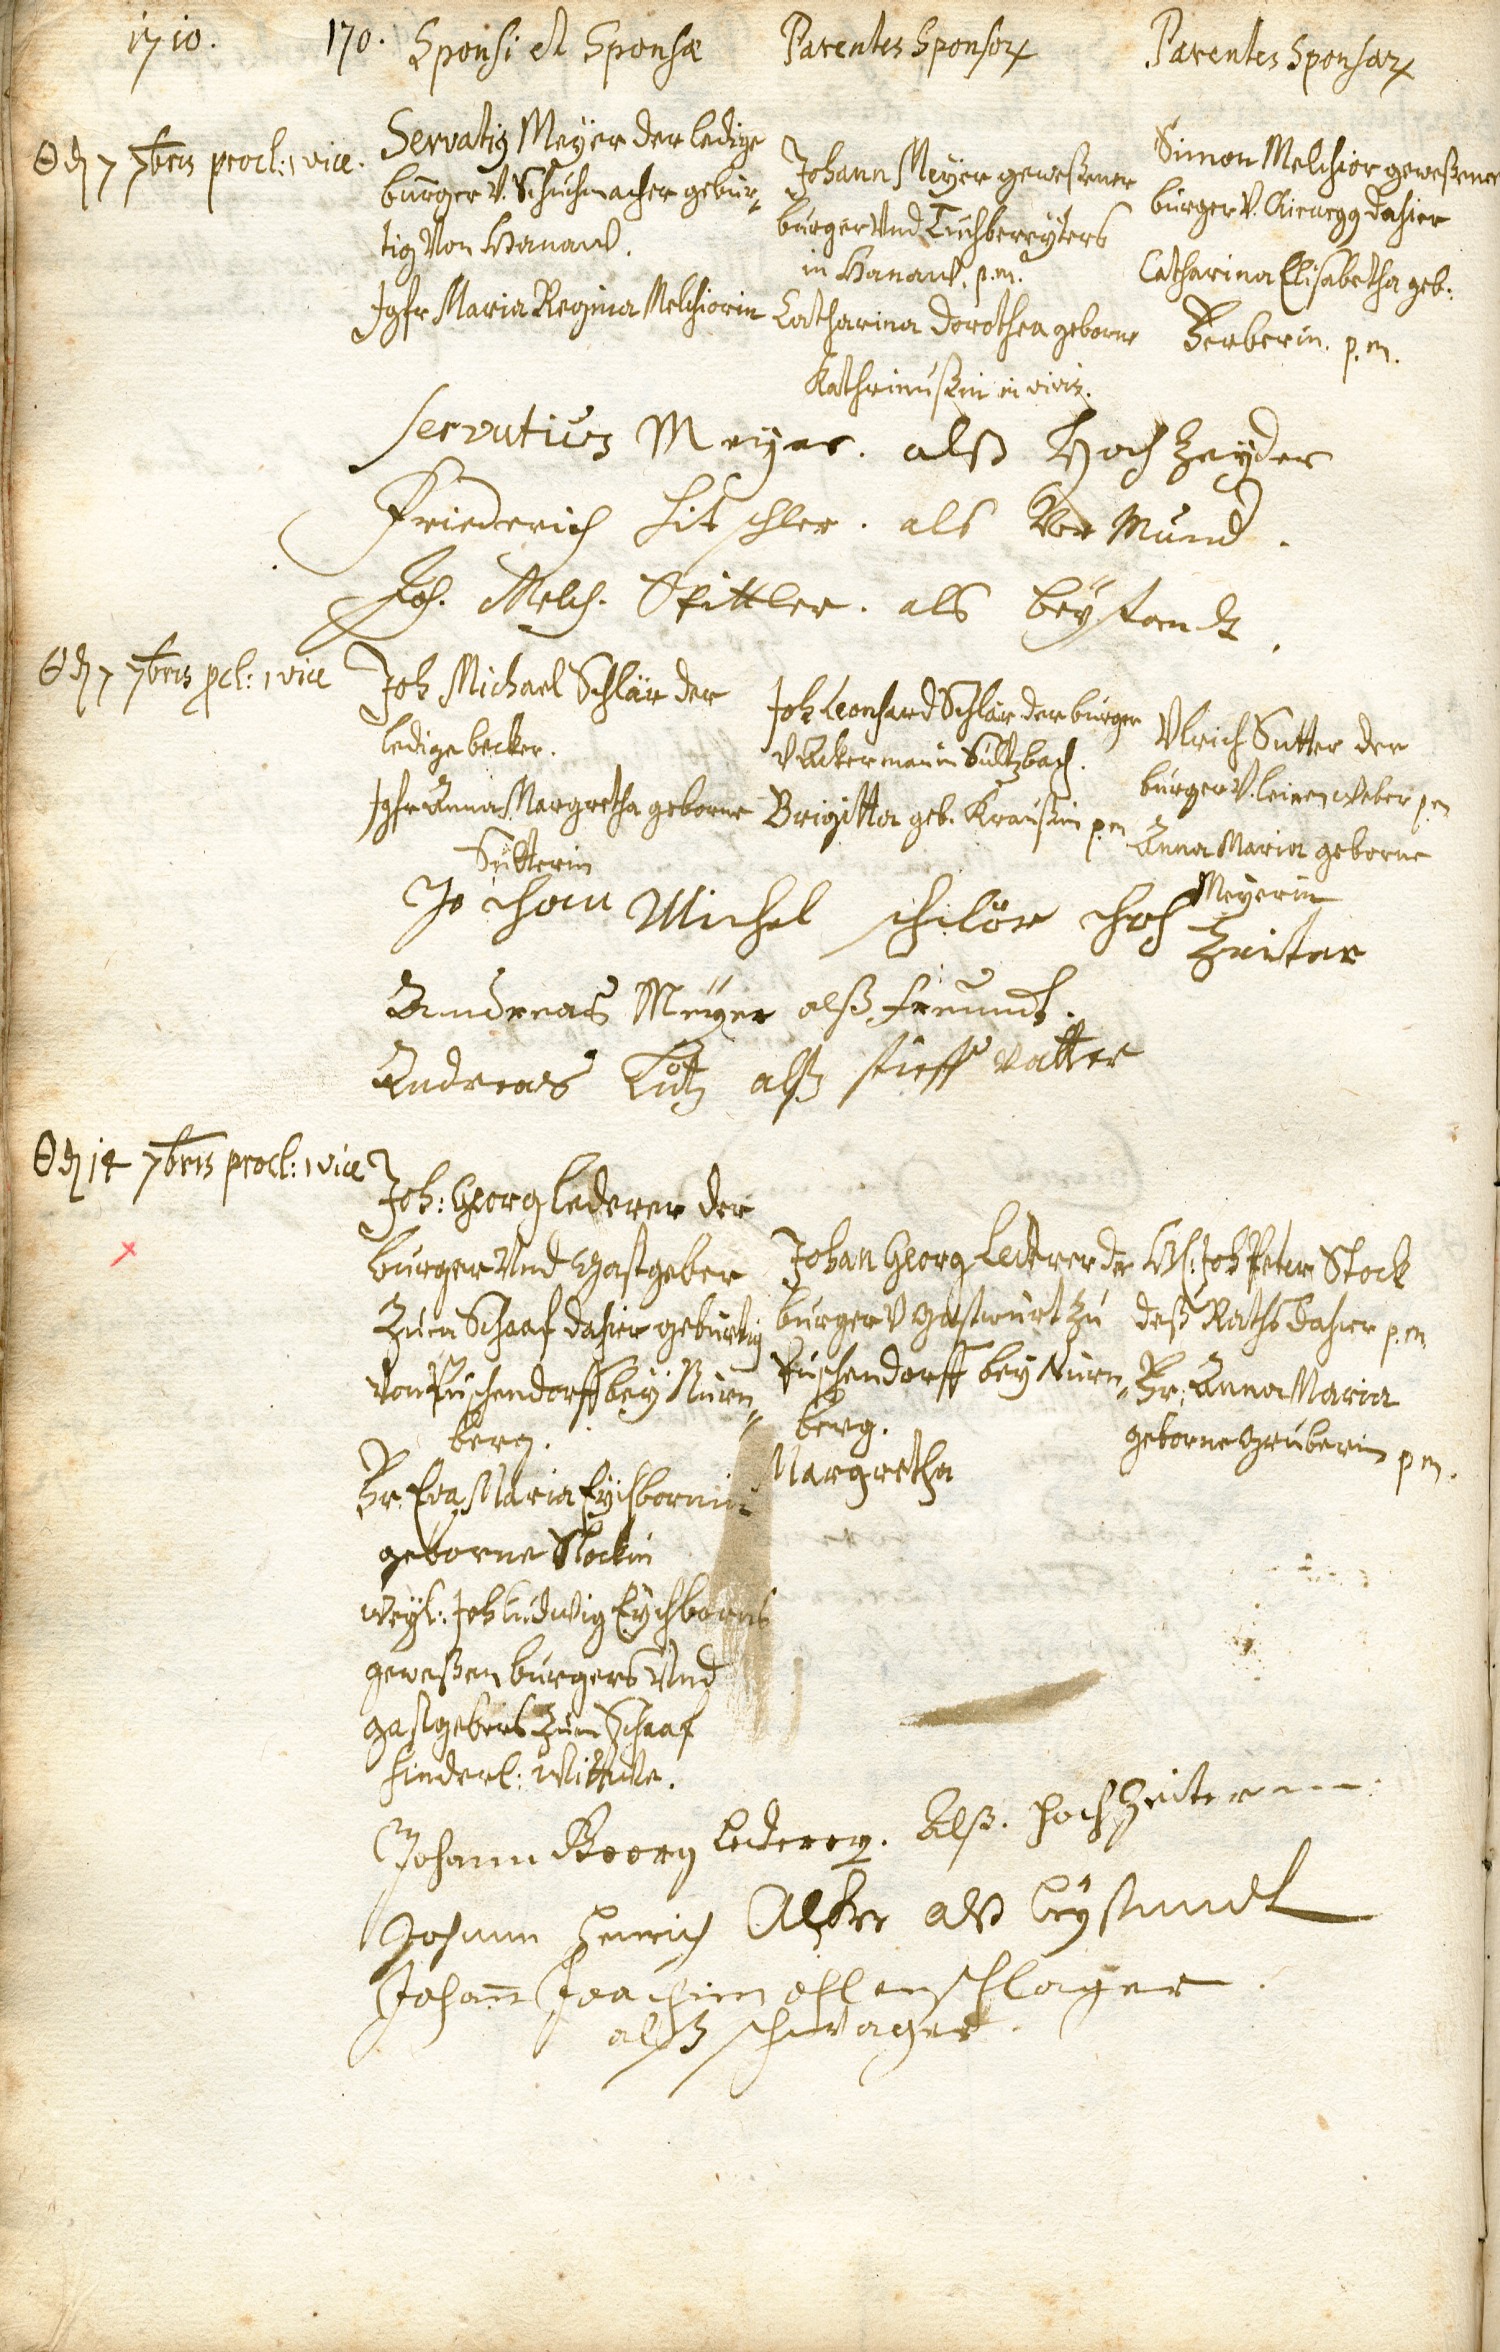 1710.
170.
Sponsi et Sponsæ
Parentes Sponsor
Parentes Sponsar
7 7bris procl: 1 vice.
Servatig Meÿer der ledige
burger v. Schuhmacher gebür-
tig von Hanaw.
Jgfr Maria Regina Melchiorin
Johann Meÿer geweßener
burger vnd Tuchbereÿters
in Hanaw. p.m.
Catharina Dorothea geborne
in vivis.
Simon Melchior geweßener
burger v. Chirurgg dahier
Catharina Elisabetha geb:
Zerberin. p.m.
servatius Meÿer. alß HochZeyder
Friederich . als Vor Mund.
Joh. Melch. Spittler. als beÿstandt.
7 7bris pcl: 1 vice
Joh Michael Schlär der
ledige becker.
Jgfr Anna Margretha geborne
Sutterin
Joh Leonhard Schlär der burger
v Ackerman in Sultzbach.
Brigitta geb. Kraußin p.m
Vlrich Sutter der
burger v. leinenweber p.m
Anna Maria geborne
Meÿerin
Jo han Michel schlör hoch Zeiter
Andreas Meÿer alß freundt.
Andreas Lutz alß stieff vatter
14 7bris procl: 1 vice
Joh: Georg Lederer der
burger vnd Gastgeber
Zum Schaaf dahier gebürtig
von Puschendorff beÿ Nürn-
berg.
Fr. Eva Maria Eÿchbornin
geborne Stockin
weÿl: Joh Ludwig Eÿchborns
geweßen burgers vnd
gastgebers zum Schaaf
hinderl: Wittwe.
Johan Georg Lederer der
burger v Gastwürt zu
Puschendorff bey Nürn-
berg.
Margretha
Joh Peter Stock
deß Raths dahier p.m
Fr. Anna Maria
geborne Gruberin p m.
Johann Georg Lederer. Alß. hochZeiter
Johann Henrich als beÿstandt
Johann Joachim ohlenschlager.
alß schwager.